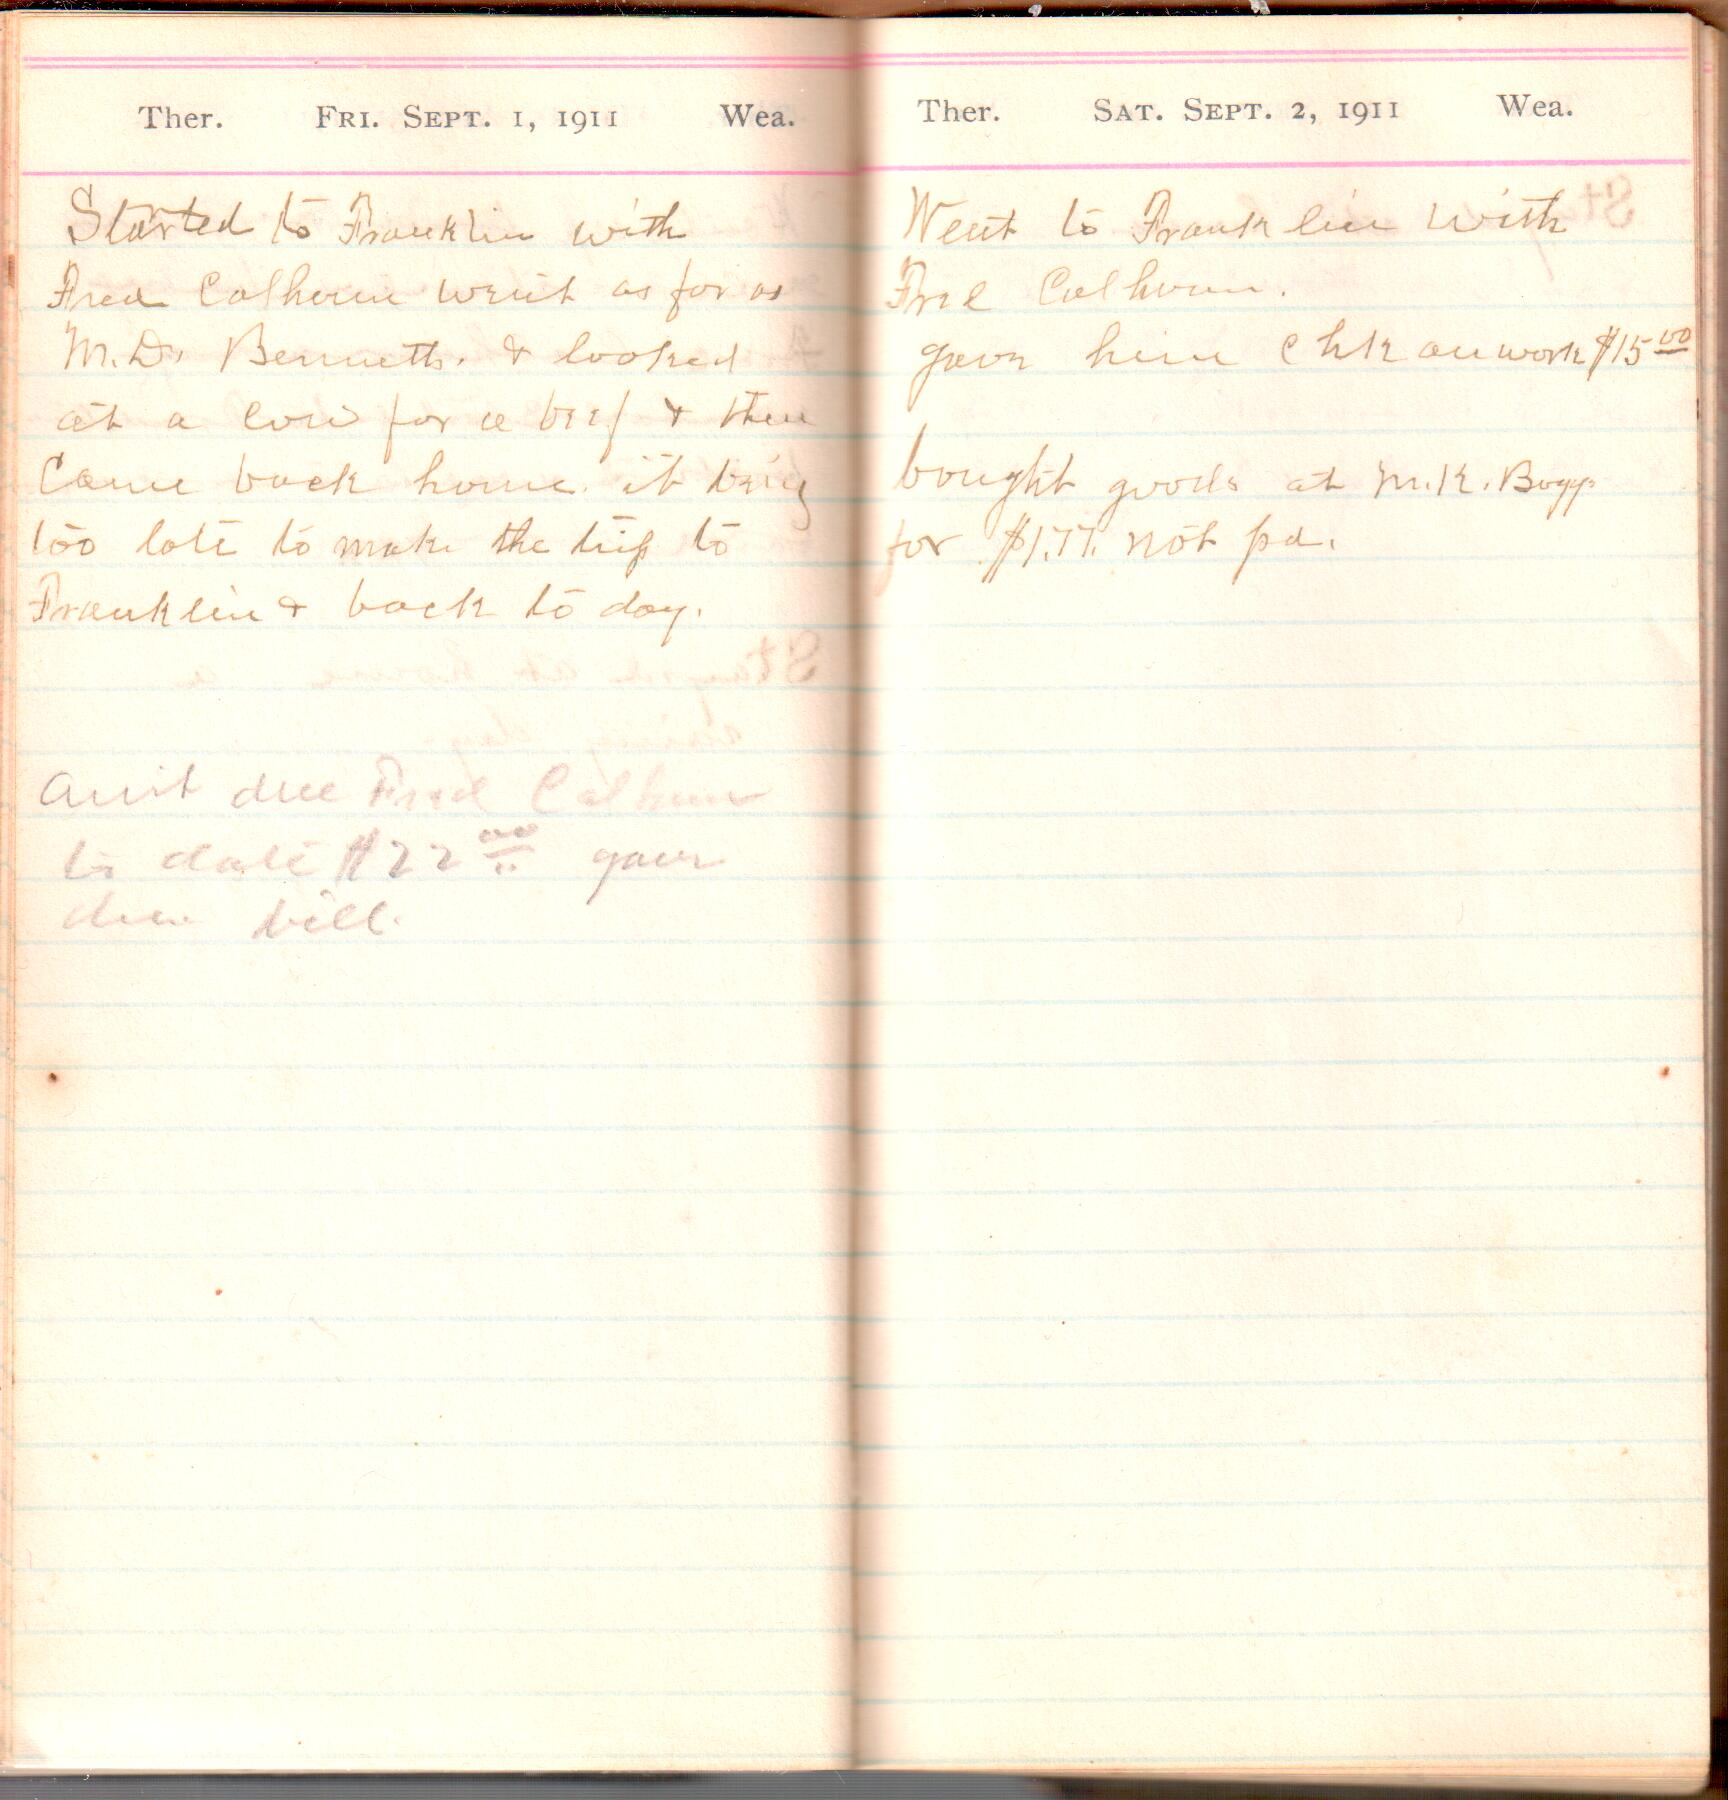 Ther. Fri. Sept. 1, 1911 Wea.
Started to Franklin with
Fred Calhoun went as far as
M.D. Bennetts. & looked
at a cow for a beef & then
Came back home. it being
too late to make the trip to
Franklin & back to day.
Amt due Fred Calhoun
to date $22.00 gave
due bill.
Ther. Sat. Sept. 2, 1911 Wea.
Went to Franklin with
Fred Calhoun.
gave him Chk on work $15.00
bought goods at M.K. Boggs
for $1.77. not pd.